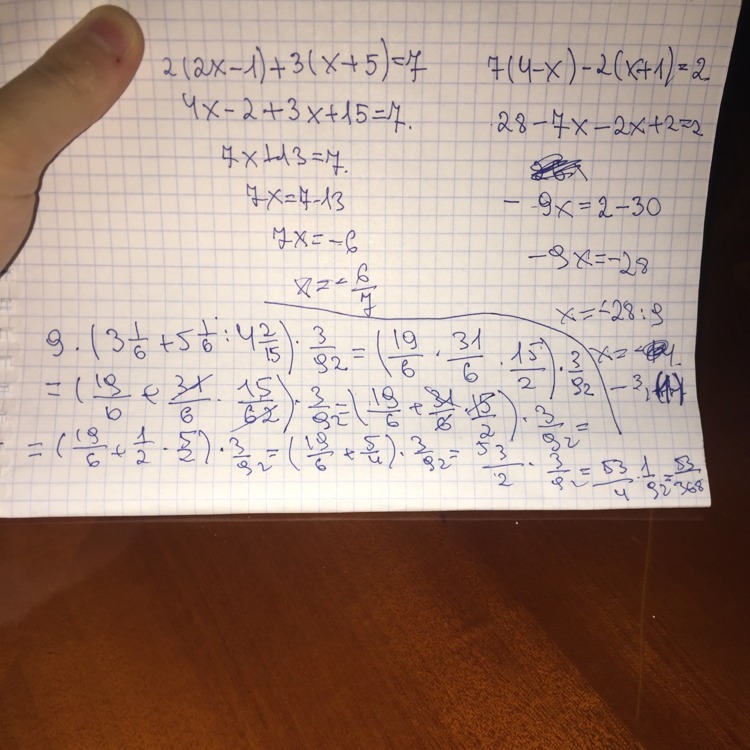 2(2x-1)+3(x+5)=7
4x-2+3x+15=7.
7x+13=7.
7x=7-13
7x=-6
x=-6/7
7(4-x)-2(x+1)=2
28-7x-2x+2=2
-9x=2-30
-9x=-28
x=-28:9
x=-
-3,
9.(3 1/6+5 1/6:4 2/15)·3/92=(19/6·31/6·15/2)·3/92
=(19/6+31/6·15/62)·3/92=(19/6+31/6·15/2)·3/92=
=(19/6+1/2·5/2)·3/92=(19/6+5/4)·3/92=53/2·3/92=53/4·1/92=53/368